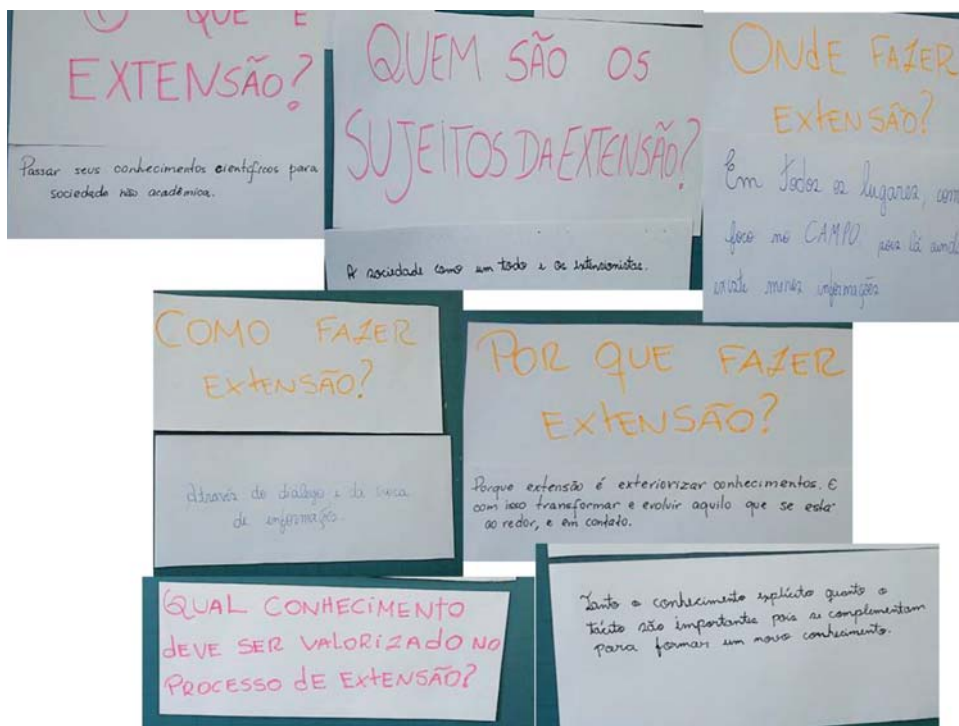 ① QUE É
EXTENSÃO?
Passar seus conhecimentos científicos para
sociedade não acadêmica.
QUEM SÃO OS
SUJEITOS DA EXTENSÃO?
A sociedade como um todo e os extensionistas.
ONdE FAZER
EXTENSÃO?
Em todos os lugares, com
foco no CAMPO, pois lá ainda
existe menos informações
COMO FAZER
EXTENSÃO?
Através do diálogo e da troca
de informações.
POR QUE FAZER
EXTENSÃO?
Porque extensão é exteriorizar conhecimentos. E
com isso transformar e evoluir aquilo que se está
ao redor, e em contato.
QUAL CONHECIMENTO
DEVE SER VALORIZADO NO
PROCESSO DE EXTENSÃO?
Tanto o conhecimento explícito quanto o
tácito são importantes pois se complementam
para formar um novo conhecimento.